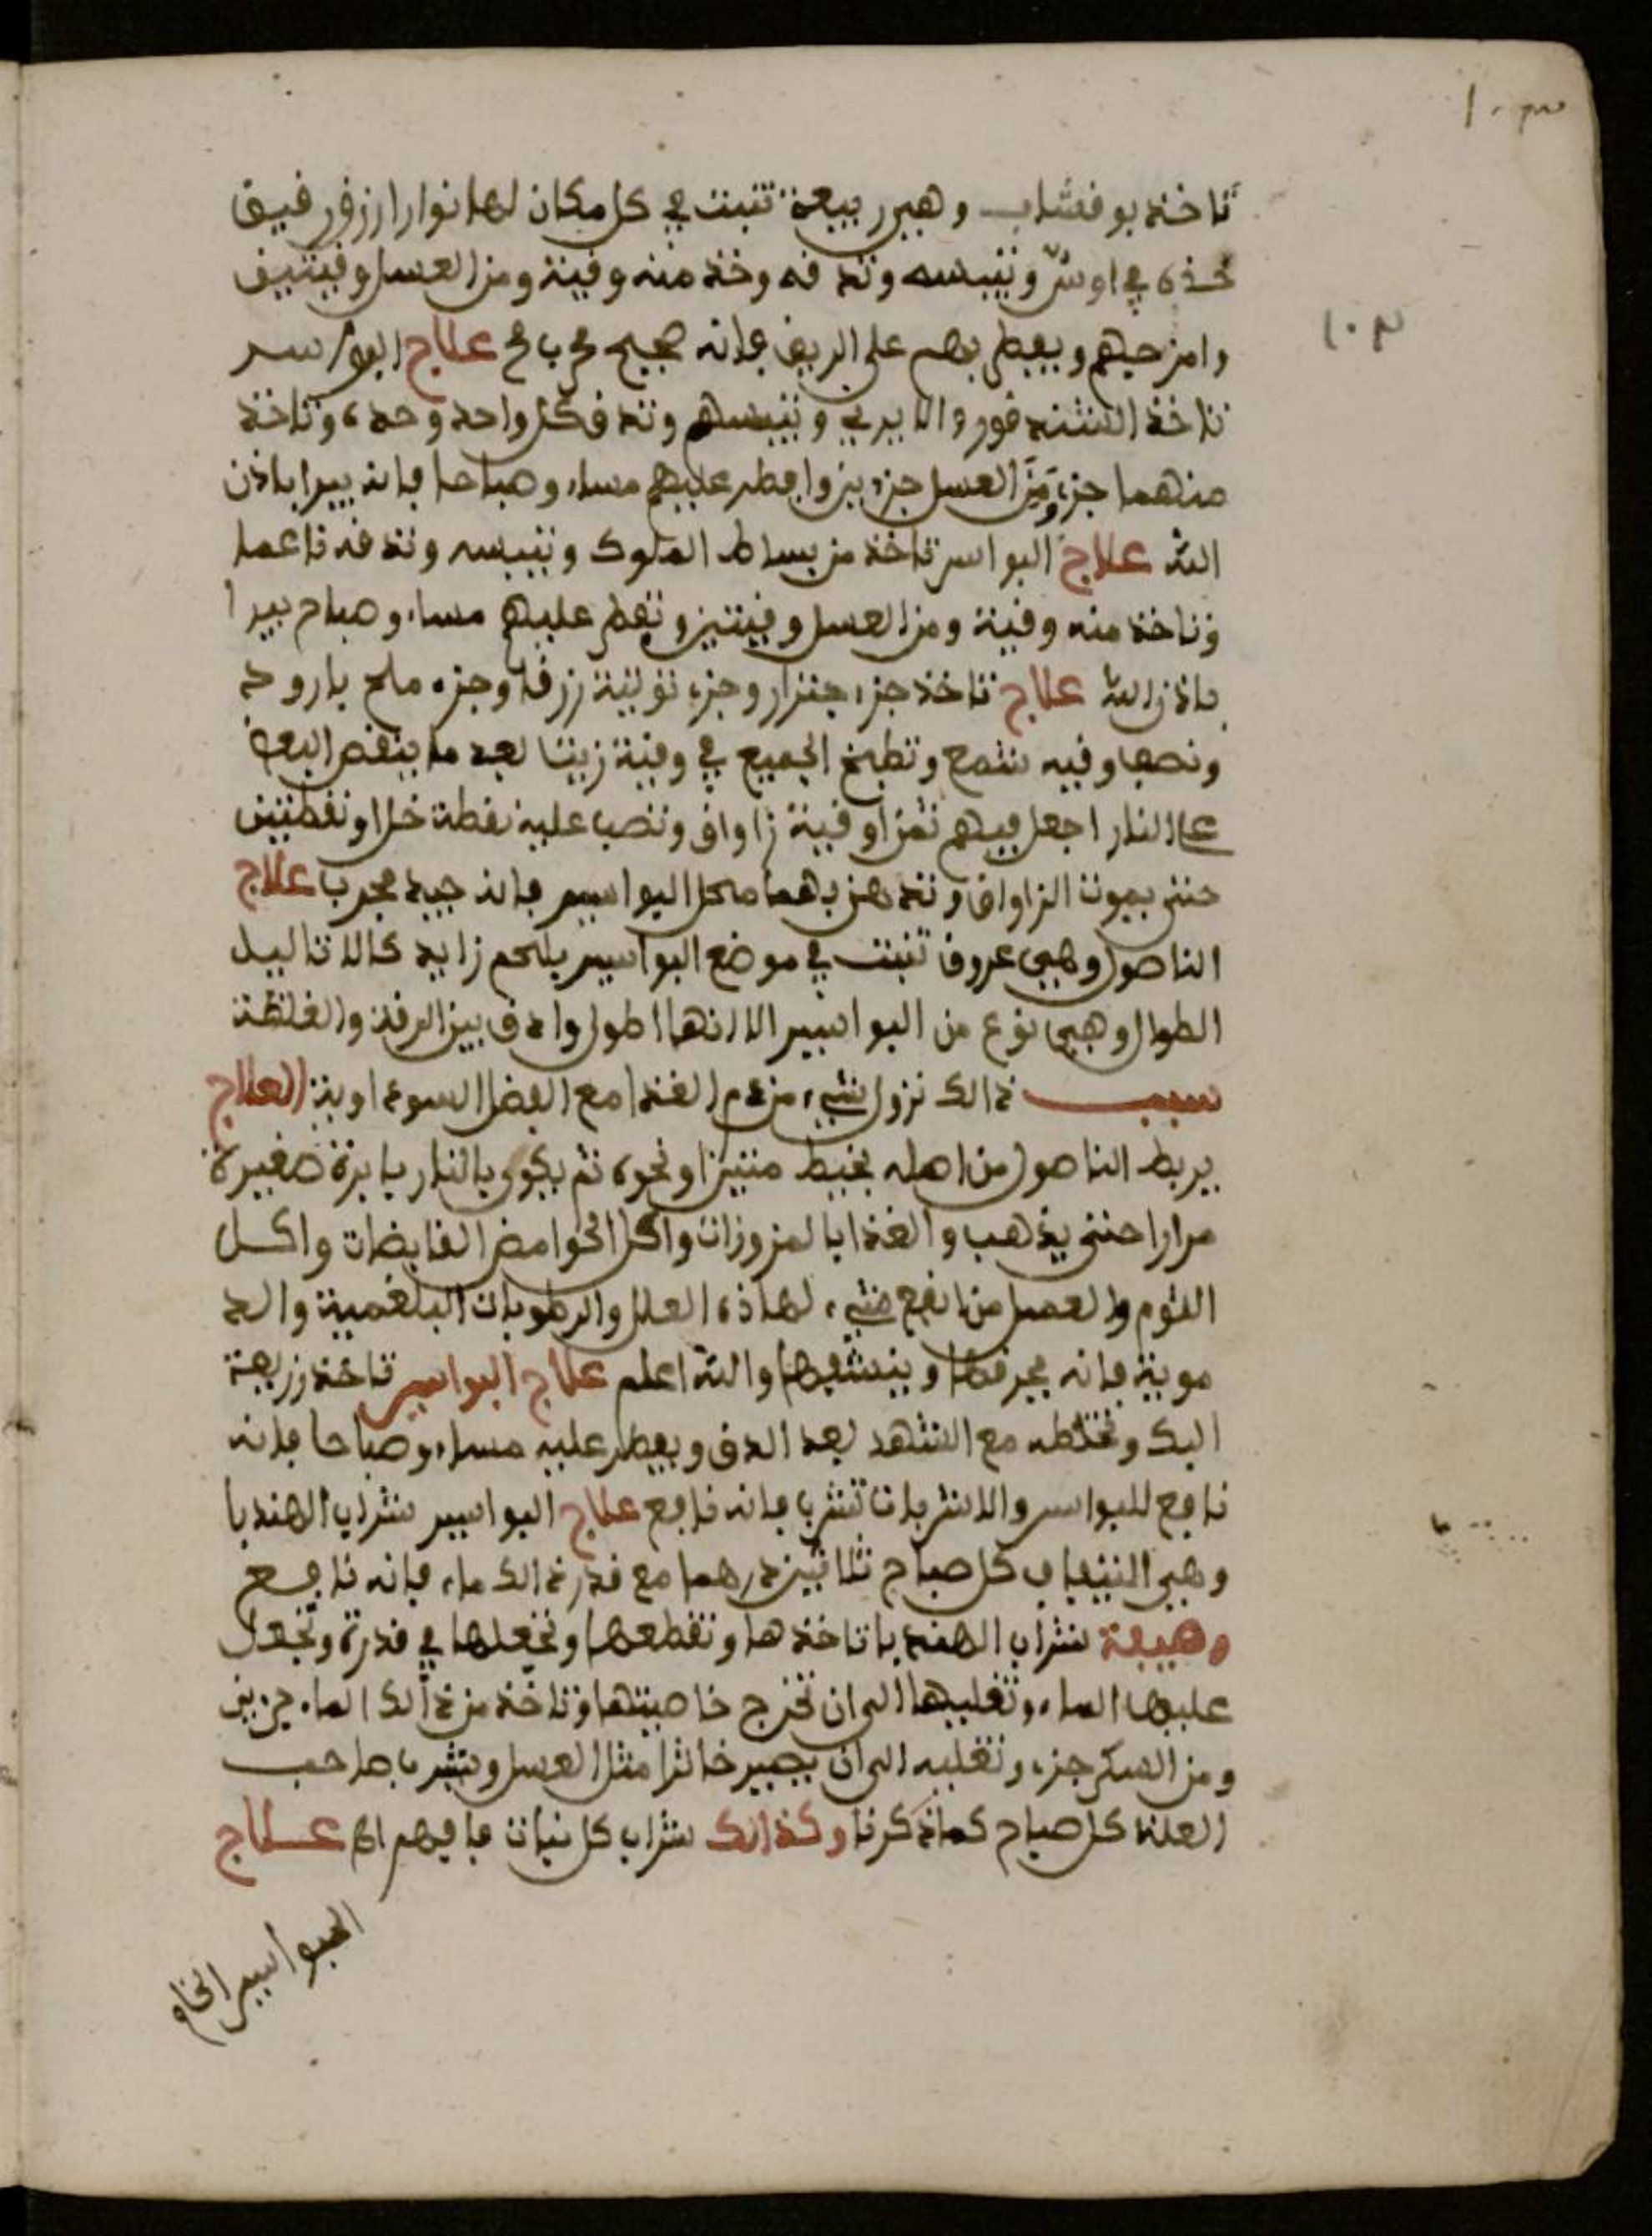 ١٠٣
١٠٣
تاخذ بوقشاب وهي ربيعة تنبت في كل مكان لها نوارا ازرق رقيق
خذه في اوش وتيبسه وتدقه وخذ منه وقية ومن العسل وقيتين
وامزجهم ويفطر بهم على الريق فانه صحيح مجرب صح علاج البواسر
تاخذ الشندقور والايربي وتيبسهم وتدق كل واحد وحده وتاخذ
منهما جزء ومن العسل جزءين وافطر عليهم مساء وصباحا فانه يبرا باذن
الله علاج البواسر تاخذ من بساط الملوك وتيبسه وتدقه ناعما
وتاخذ منه وقية ومن العسل وقيتين وتفطر عليهم مساء وصباح يبرا
باذن الله علاج تاخذ جزء جنزار وجزء توتية زرقا وجزء ملح بارود
ونصف وقيه شمع وتطبخ الجميع في وقية زيتا بعد ما ينقص البعض
على النار اجعل فيهم ثمن اوقية زاواق وتصب عليه نقطة خل او نقطتين
حتى يموت الزاواق وتدهن بهما محل البواسير فانه جيد مجرب علاج
الناصول وهي عروق تنبت في موضع البواسير بلحم زايد كالاثاليل
الطوال وهي نوع من البواسير الا انها اطول وادق بين الرقة والغلظة
سبب ذالك نزول شيء من دم الغذا مع الفضل السوداوية العلاج
يربط الناصول من اصله بخيط متين او نحوه ثم يكوى بالنار بابرة صغيرة
مرارا حتى يذهب والغذا بالمزورات واكل الحوامض القابضات واكل
الثوم والعسل من انفع شيء لهاذه العلل والرطوبات البلغمية والد
موية فانه يحرقها وينشفها والله اعلم علاج البواسير تاخذ زريعة
البك وتخلطه مع الشهد بعد الدق ويفطر عليه مساء وصباحا فانه
نافع للبواسر والاشربات تشرب فانه نافع علاج البواسير شراب الهندبا
وهي التيفاف كل صباح ثلاثين درهما مع قدر ذالك ماء فانه نافع
وصيفة شراب الهندبا تاخذها وتقطعها وتجعلها في قدرة وتجعل
عليها الماء وتغليها الى ان تخرج خاصيتها وتاخذ من ذالك الماء جزءين
ومن السكر جزء وتغليه الى ان يصير خاثرا مثل العسل ويشرب صاحب
العلة كل صباح كما ذكرنا وكذالك شراب كل نبات فافهم اه علاج
البواسير الخا